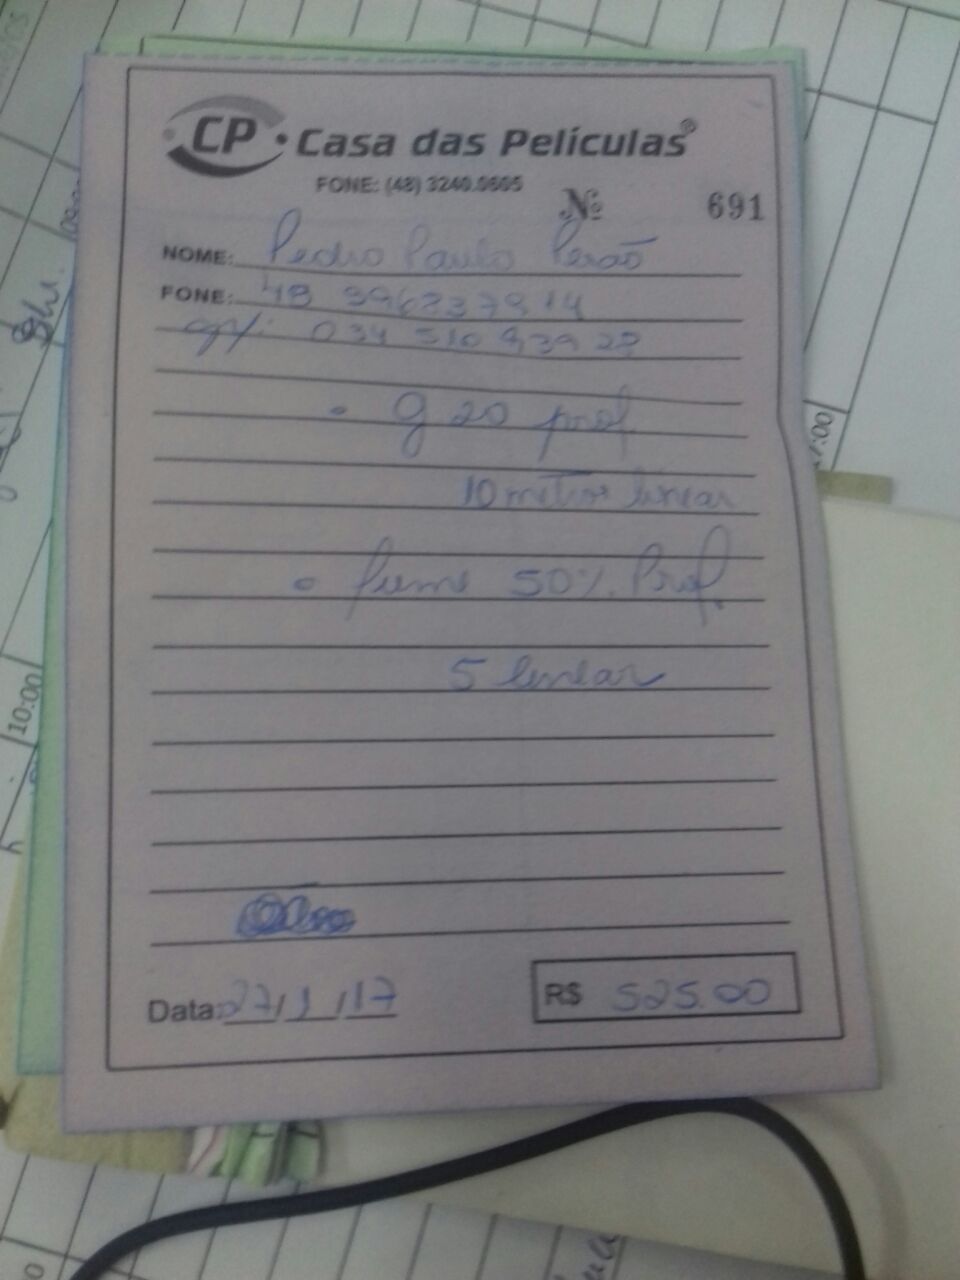 CP Casa das Películas®
FONE: (48) 3240.0605
Nº 691
NOME: Pedro Paulo
FONE: 48 996237914
034 510
• g 20 prof
10 metros linear
• fume 50% Prof.
5 linear
Data: 27/1/17
R$ 525.00
10:00